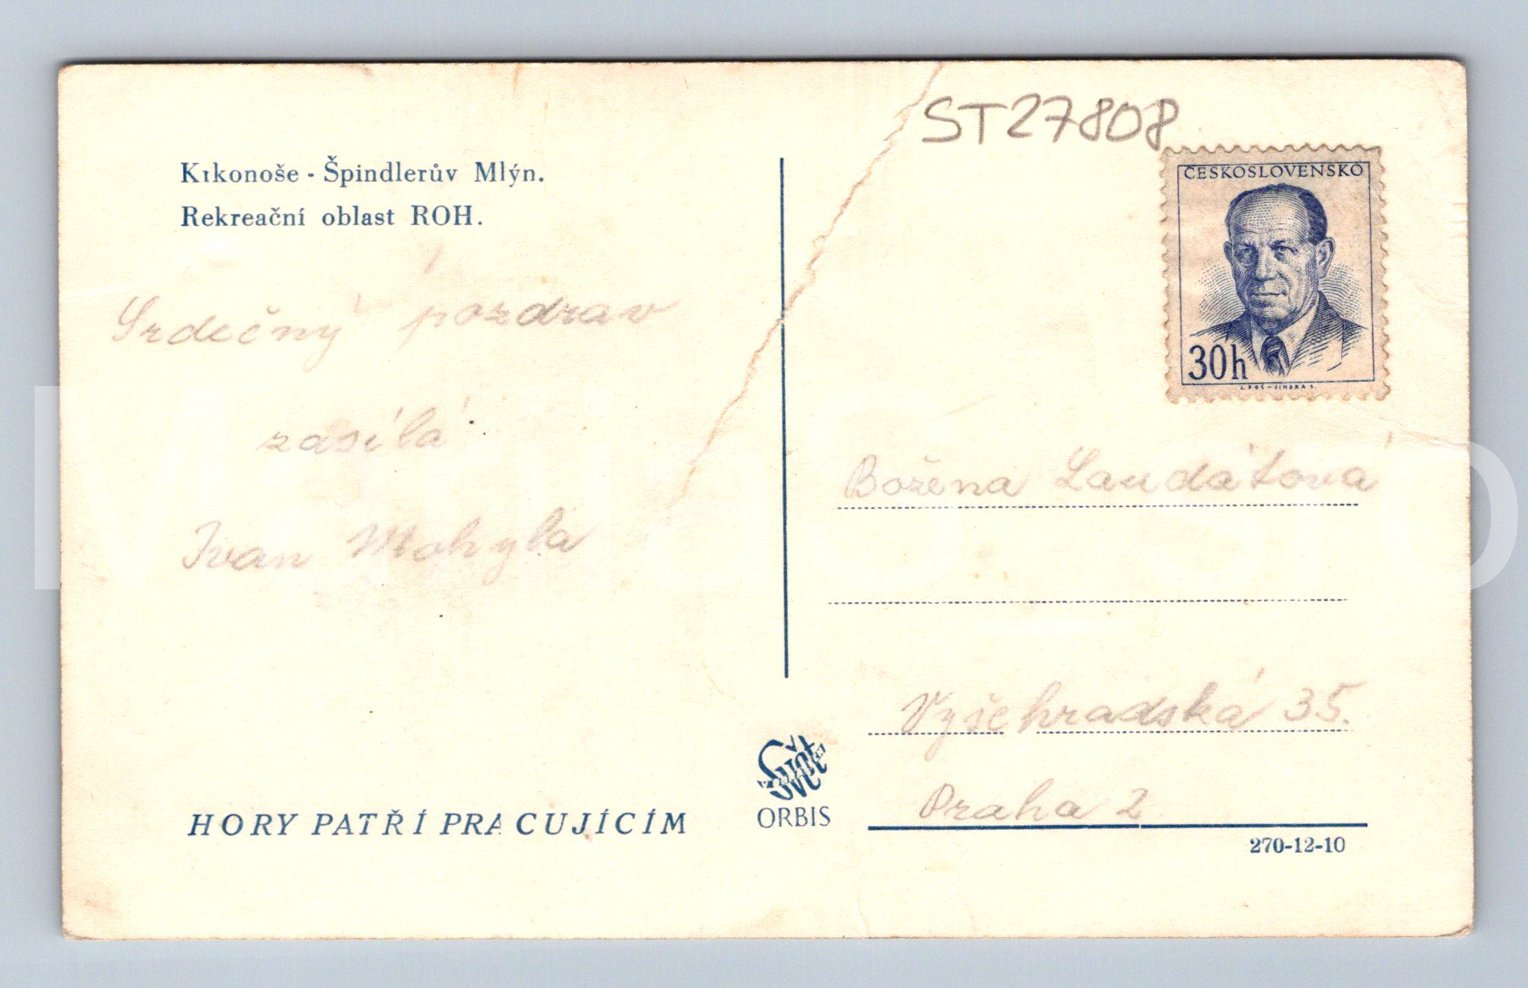 ST27808
Krkonoše - Špindlerův Mlýn.
Rekreační oblast ROH.
ČESKOSLOVENSKO
30h
Srdečný pozdrav
zasílá
Ivan Mohyla
Božena Laudátová
Vyšehradská 35.
Praha 2
HORY PATŘÍ PRACUJÍCÍM
Svět
ORBIS
270-12-10